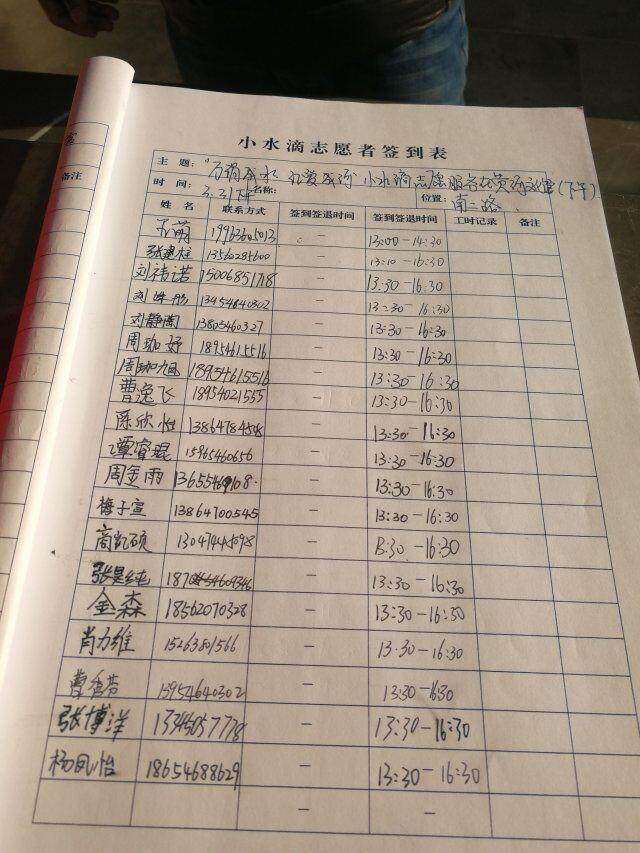 备注
小水滴志愿者签到表
主 题: 小水滴志愿服务 (下午)
时 间: 3.31下午 名称: 位置: 南二路
姓 名 联系方式 签到签退时间 签到签退时间 工时记录 备注
13:00-14:30
张建柱 13560285600 - 13:10-16:30
刘祎诺 15006851718 - 13:30-16:30
13954640302 - 13:30-16:30
刘静 13805460327 - 13:30-16:30
周珈妤 18954615516 - 13:30-16:30
周珈旭 18954615516 - 13:30-16:30
曹逸飞 18954021555 - 13:30-16:30
陈欣怡 - 13:30-16:30
谭睿琨 15965460656 - 13:30-16:30
周金雨 - 13:30-16:30
梅子宣 13864700545 - 13:30-16:30
商凯硕 - 13:30-16:30
张昊纯 - 13:30-16:30
金森 18562070328 - 13:30-16:30
肖力维 15263801566 - 13:30-16:30
曹 13954640302 - 13:30-16:30
张博洋 13345057778 - 13:30-16:30
杨凤怡 18654688629 - 13:30-16:30
- -